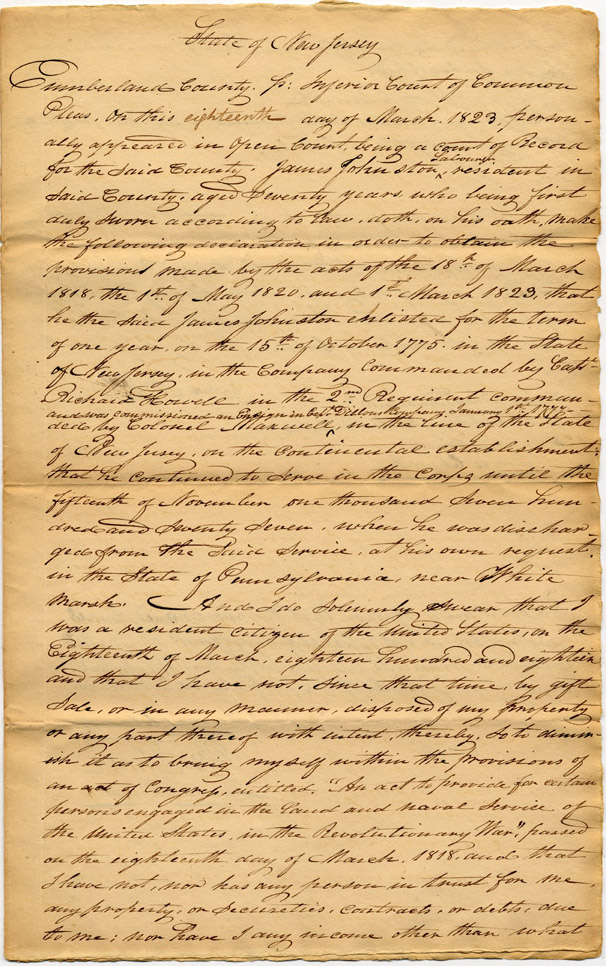 State of New Jersey
Cumberland County. ss: Inferior Court of Common
Pleas. On this eighteenth day of March. 1823, person-
ally appeared in Open Court, being a court of Record
for the said County. James Johnston, resident in
Labourer
said County, aged Seventy years who being first
duly sworn according to law, doth, on his oath, make
the following declaration in order to obtain the
provisions made by the acts of the 18th of March
1818, the 1st of May 1820, and 1st March 1823, that
he the said James Johnston enlisted for the term
of one year, on the 15th of October 1775. in the State
of New Jersey, in the Company Commanded by Capt
Richard Howell in the 2nd Regiment comman-
and was commissioned an Ensign in Capt Dillons Company January 1st 1777-
ded by Colonel Maxwell, in the line of the State
of New Jersey, on the Continental establishment;
that he continued to serve in the Corps until the
fifteenth of November one thousand Seven hun-
dred and Seventy Seven, when he was dischar-
ged from the said Service, at his own request,
in the State of Pennsylvania, near White
Marsh. And I do Solemnly swear that I
was a resident citizen of the United States, on the
Eighteenth of March, eighteen hundred and eighteen
and that I have not, since that time, by gift
Sale, or in any manner, disposed of my property
or any part thereof with intent, thereby, so to dimin-
ish it as to bring myself within the provisions of
an act of Congress, entitled, "An act to provide for certain
persons engaged in the land and naval Service of
the United States, in the Revolutionary War", passed
on the eighteenth day of March, 1818, and that
I have not, nor has any person in trust for me,
any property, or Securities, contracts, or debts, due
to me; nor have I any income other than what